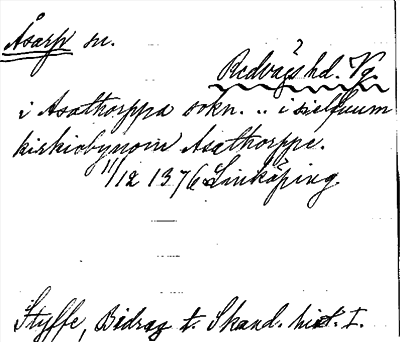 Åsarp sn.
?
Redvägs hd. Vg.
i Asathorppa sokn. .. i sielfuum
kirkiobynom Asathorppe.
11/12 1376 Linköping.
Styffe, Bidrag t. Skand. hist. I.